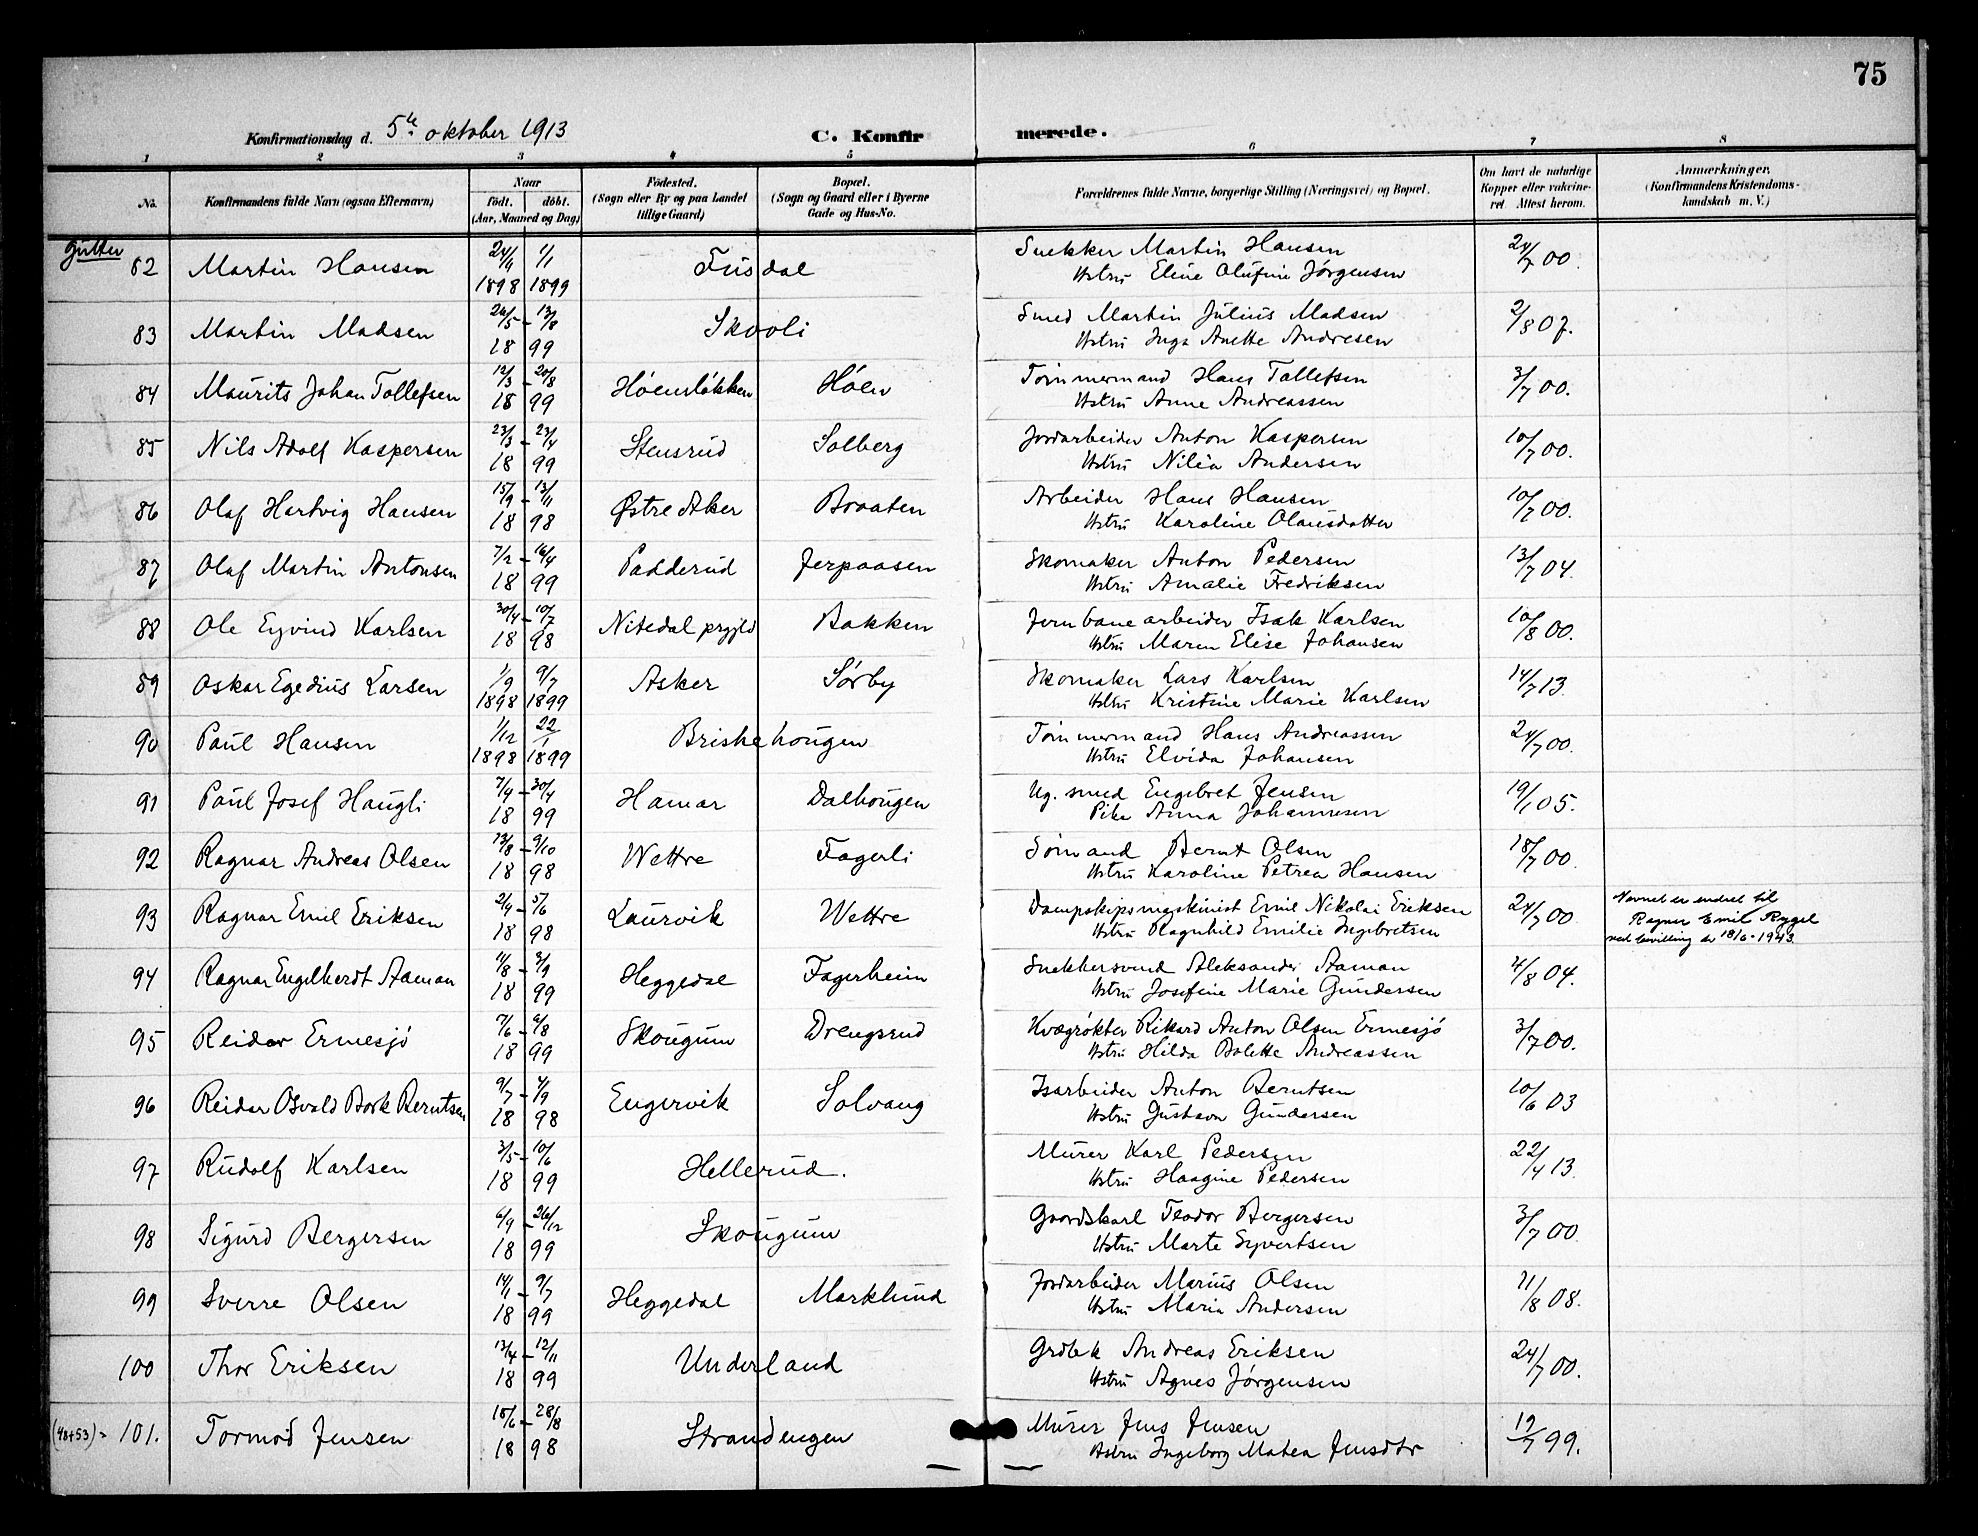 75
Konfirmationsdag d. 5te oktober 1913 C. Konfirmerede.
1 2 3 4 5 6 7 8
No. Konfirmandens fulde Navn (ogsaa Efternavn) Naar født. døbt. (Aar, Maaned og Dag) Fødested. (Sogn eller By og paa Landet tillige Gaard) Bopæl. (Sogn og Gaard eller i Byerne Gade og Hus-No. Forældrenes fulde Navne, borgerlige Stilling (Næringsvei) og Bopæl. Om havt de naturlige Kopper eller vakcineret. Attest herom. Anmærkninger. (Konfirmandens Kristendomskundskab m. V.)
Gutter
82 Martin Hansen 24/9 1898 1/1 1899 Fusdal Snekker Martin Hansen 24/7 00.
Hstru Eline Olufine Jørgensen
83 Martin Madsen 26/5 - 13/8 1899 Skooli Smed Martin Julius Madsen 2/8 07.
Hstru Inga Anette Andresen
84 Maurits Johan Tollefsen 12/3 - 20/8 1899 Høensløkken Høen Tømmermand Hans Tollefsen 3/7 00.
Hstru Anne Andreassen
85 Nils Adolf Kaspersen 23/3 - 23/4 1899 Stensrud Solberg Jordarbeider Anton Kaspersen 10/7 00.
Hstru Nilia Andersen
86 Olaf Hartvig Hansen 15/9 - 13/11 1898 Østre Aker Braaten Arbeider Hans Hansen 10/7 00.
Hstru Karoline Olausdatter
87 Olaf Martin Antonsen 7/2 - 16/4 1899 Padderud Jerpaasen Skomaker Anton Pedersen 13/7 04.
Hstru Amalie Fredriksen
88 Ole Eyvind Karlsen 30/4 - 10/7 1898 Nitedal prgjld Bakken Jernbanearbeider Isak Karlsen 10/8 00.
Hstru Maren Elise Johansen
89 Oskar Egedius Larsen 1/9 1898 9/7 1899 Asker Sørby Skomaker Lars Karlsen 14/7 13
Hstru Kristine Marie Karlsen
90 Paul Hansen 1/12 1898 22/1 1899 Briskehougen Tømmermand Hans Andreassen 24/7 00.
Hstru Elvida Johansen
91 Paul Josef Haugli 7/4 - 30/4 1899 Hamar Dalhougen Ug. smed Engebret Jensen 19/1 05.
Pike Anna Johannesen
92 Ragnar Andreas Olsen 13/8 - 9/10 1898 Wettre Fagerli Sømand Bernt Olsen 18/7 00.
Hstru Karoline Petrea Hansen
93 Ragnar Emil Eriksen 2/4 - 5/6 1898 Laurvik Wettre Dampskipsmaskinist Emil Nikolai Eriksen 24/7 00 Navnet er endret til
Hstru Ragnhild Emilie Ingebretsen Ragnar Emil Rygel
ved bevilling av 18/6-1943
94 Ragnar Engelhardt Aaman 11/8 - 3/9 1899 Heggedal Fagerheim Snekkersvend Aleksander Aaman 4/8 04.
Hstru Josefine Marie Gundersen
95 Reidar Ernesjø 7/6 - 6/8 1899 Skougum Drengsrud Kvægrøkter Rikard Anton Olsen Ernesjø 3/7 00.
Hstru Hilda Bolette Andreassen
96 Reidar Osvald Bork Berntsen 9/7 - 4/9 1898 Engervik Solvang Isarbeider Anton Berntsen 10/6 03
Hstru Gustava Gundersen
97 Rudolf Karlsen 3/5 - 10/6 1899 Hellerud. Murer Karl Pedersen 22/4 13
Hstru Haagine Pedersen
98 Sigurd Bergersen 6/9 - 26/12 1899 Skougum Gaardskarl Teodor Bergersen 3/7 00
Hstru Marte Syvertsen
99 Sverre Olsen 14/1 - 9/7 1899 Heggedal Marklund Jordarbeider Marius Olsen 11/8 08.
Hstru Maria Andersen
100 Thor Eriksen 13/4 - 12/11 1899 Underland Grdbk Andreas Eriksen 24/7 00.
Hstru Agnes Jørgensen
(48+53) = 101. Tormod Jensen 15/6 - 28/8 1898 Strandengen Murer Jens Jensen 12/7 99.
Hstru Ingeborg Matea Jensdtr